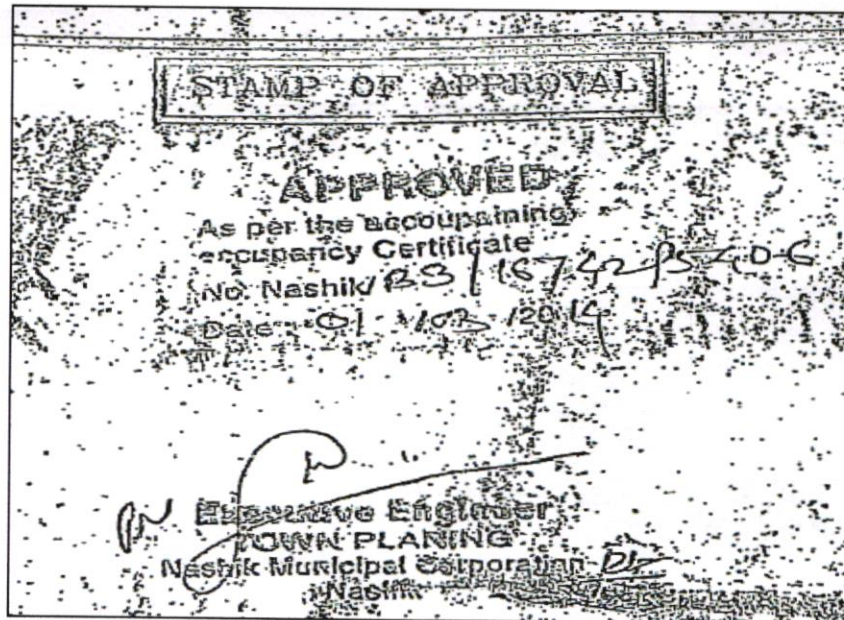 STAMP OF APPROVAL
APPROVED
As per the accoupaining
occupancy Certificate
No. Nashik/
Date :- 01 /03 /2014
Executive Engineer
TOWN PLANING
Nashik Municipal Corporation
Nashik